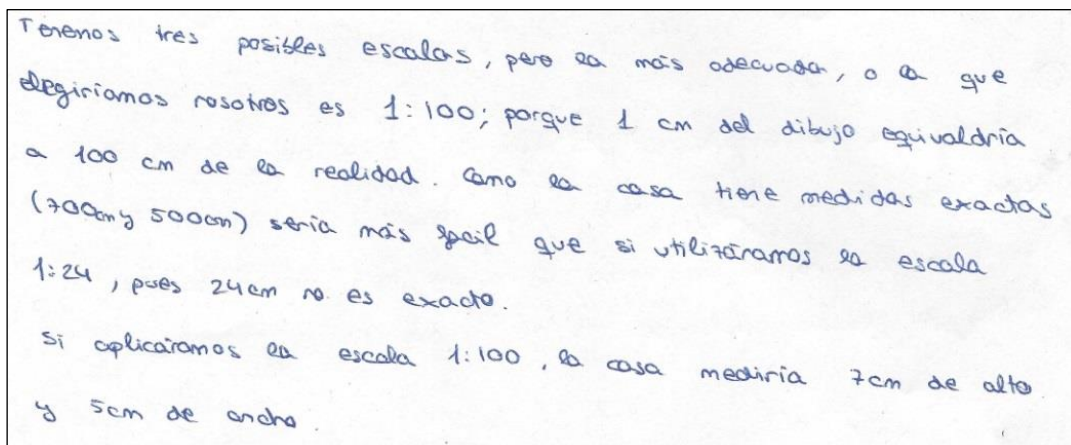 Tenemos tres posibles escalas, pero la más adecuada, o la que
elegiríamos nosotros es 1:100; porque 1 cm del dibujo equivaldría
a 100 cm de la realidad. Como la casa tiene medidas exactas
(700cm y 500cm) sería más fácil que si utilizáramos la escala
1:24, pues 24cm no es exacto.
Si aplicáramos la escala 1:100, la casa mediría 7cm de alto
y 5cm de ancho.